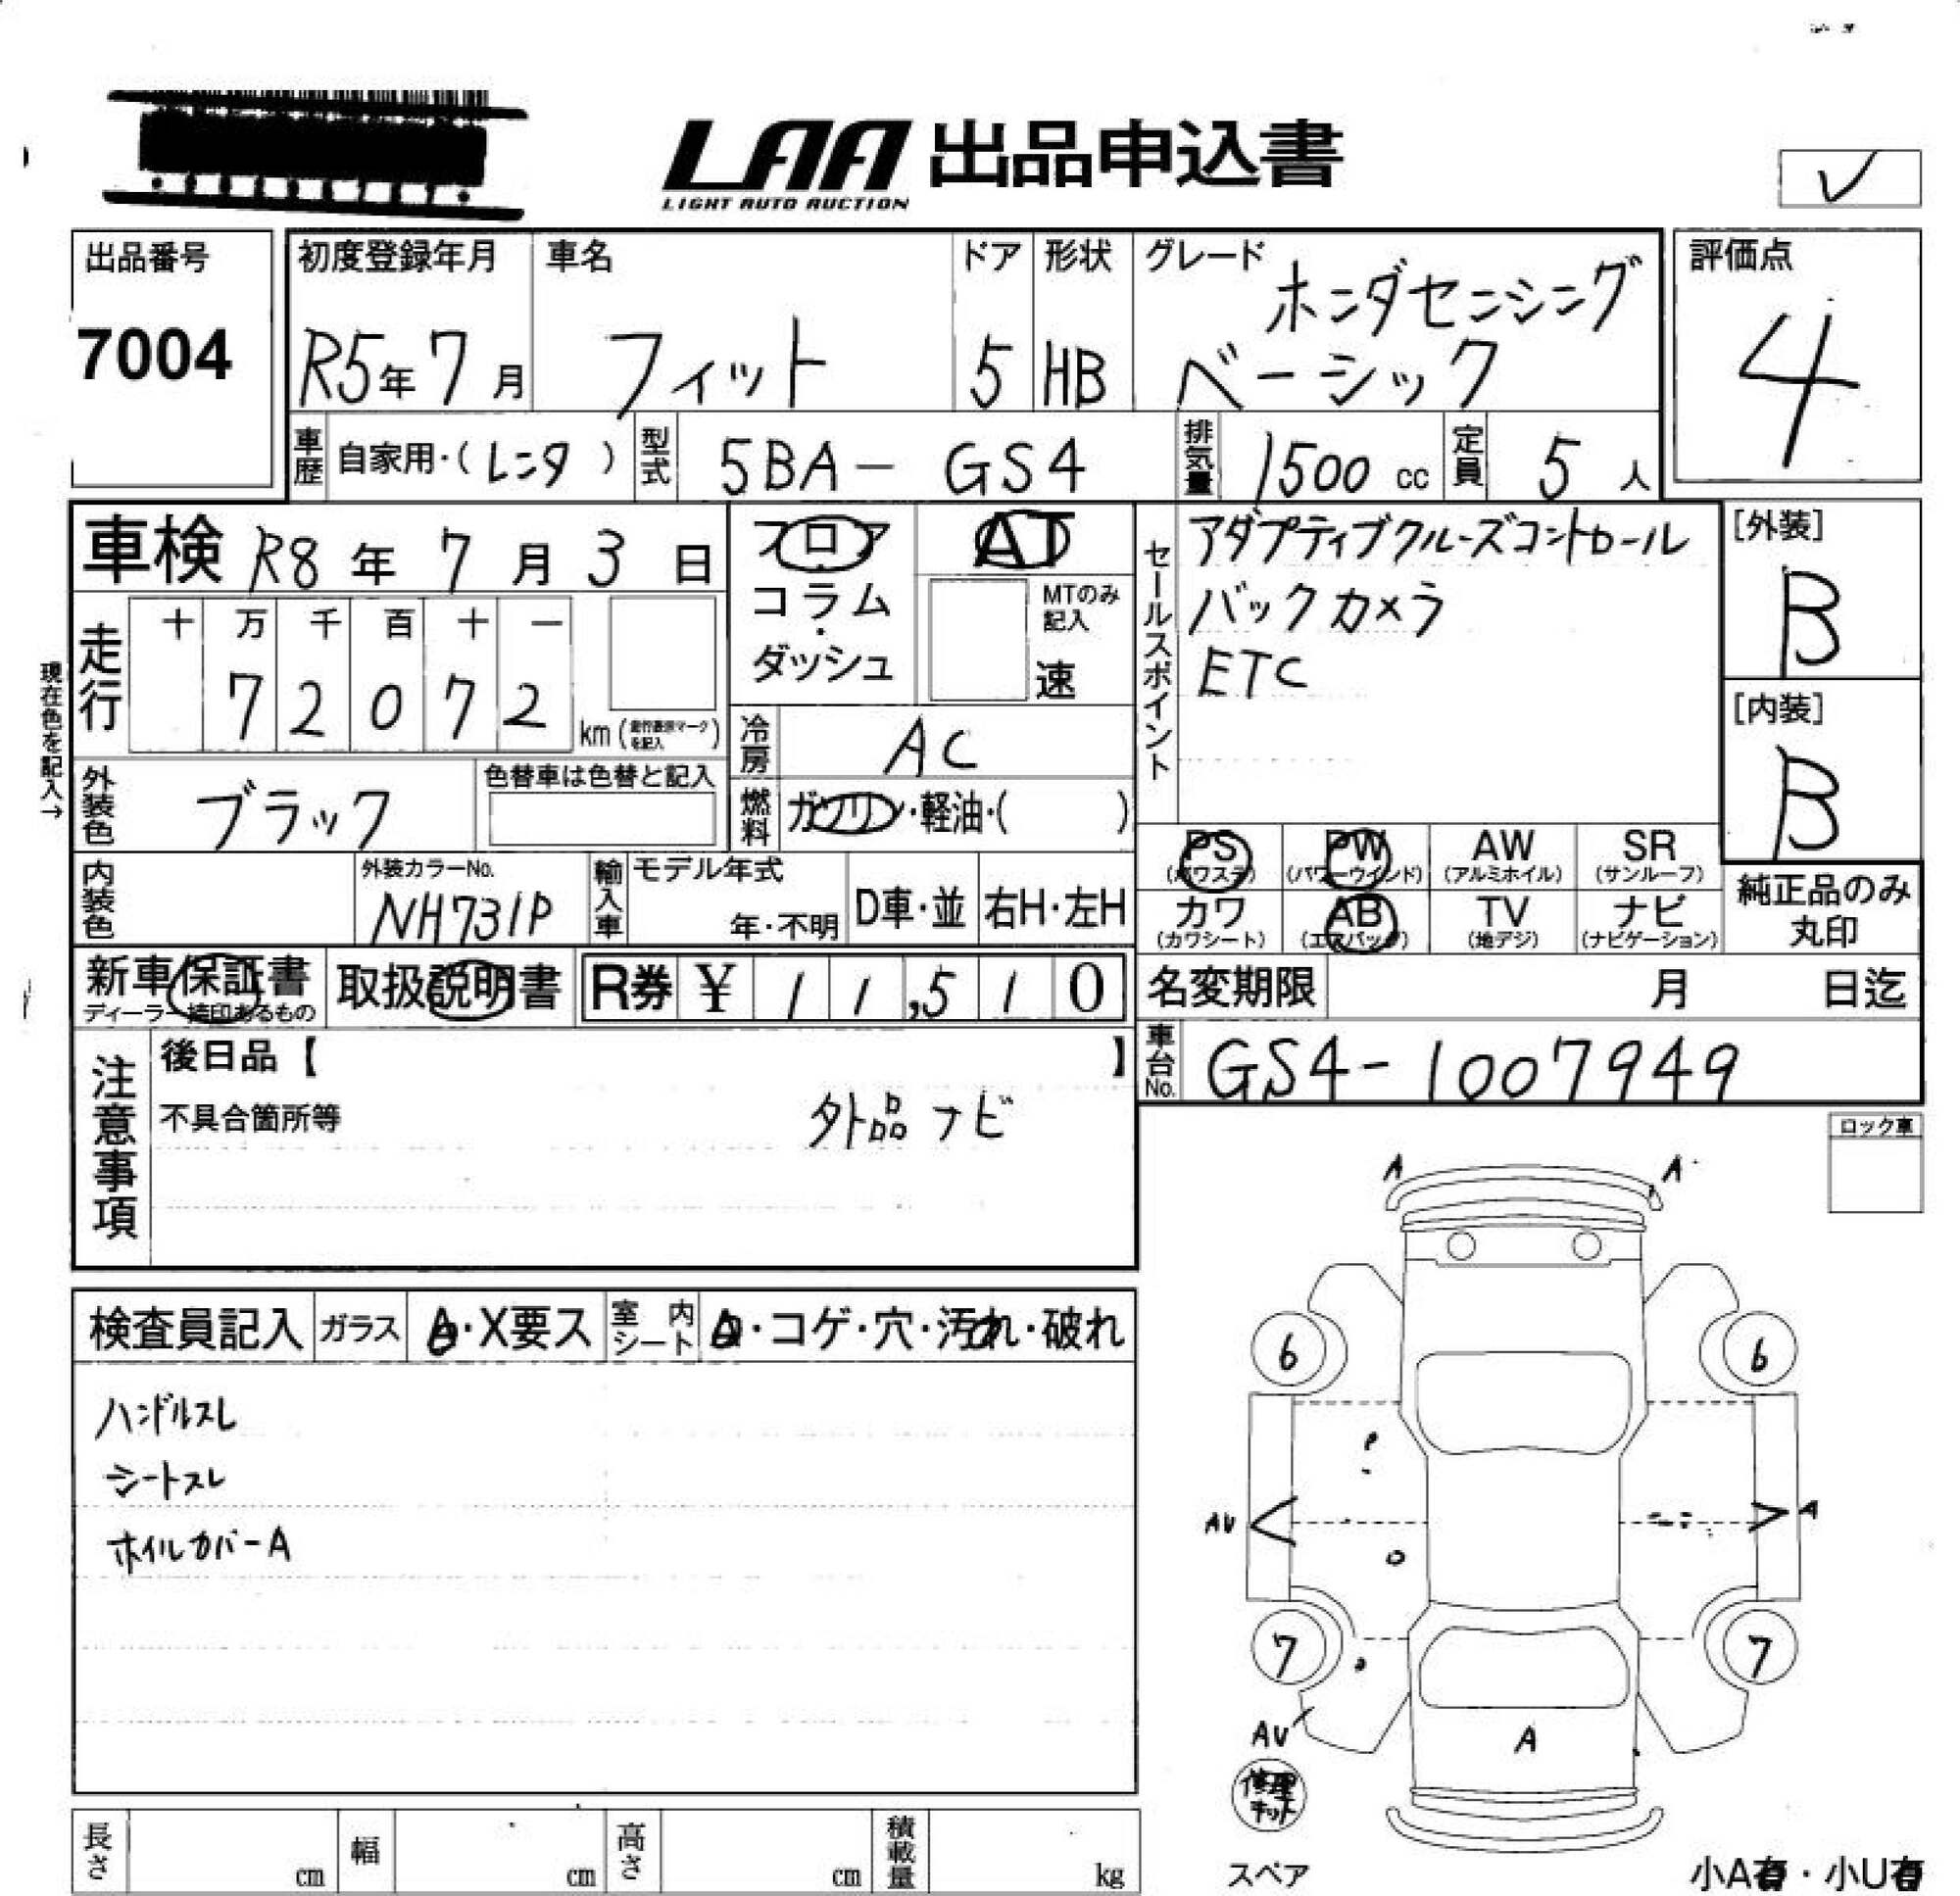 LAA 出品申込書
LIGHT AUTO AUCTION
出品番号
7004
初度登録年月
R5年 7月
車名
フィット
ドア
5
形状
HB
グレード
ホンダセンシング
ベーシック
評価点
4
車歴 自家用・(レンタ)
型式 5BA- GS4
排気量 1500 cc
定員 5 人
車検 R8年 7月 3日
フロア
コラム
・
ダッシュ
AT
MTのみ
記入
速
セールスポイント
アダプティブクルーズコントロール
バックカメラ
ETC
[外装]
B
[内装]
B
現在色を記入→
走行
十 万 千 百 十 一
7 2 0 7 2
km(走行表示マークを記入)
冷房 AC
燃料 ガソリン・軽油・( )
外装色 ブラック
色替車は色替と記入
内装色
外装カラーNo.
NH731P
輸入車
モデル年式
年・不明
D車・並
右H・左H
PS
(パワステ)
PW
(パワーウインド)
AW
(アルミホイル)
SR
(サンルーフ)
カワ
(カワシート)
AB
(エアバッグ)
TV
(地デジ)
ナビ
(ナビゲーション)
純正品のみ
丸印
新車保証書
ディーラー捺印あるもの
取扱説明書
R券 ¥ 11,510
名変期限 月 日迄
車台No. GS4-1007949
注意事項
後日品【 】
不具合箇所等
外品ナビ
ロック車
検査員記入
ガラス
・X要ス
室内シート
・コゲ・穴・汚れ・破れ
ハンドルスレ
シートスレ
ホイルカバーA
A A
6 6
AU A
7 7
AU
A
修理
キット
スペア
小A有・小U有
長さ cm
幅 cm
高さ cm
積載量 kg